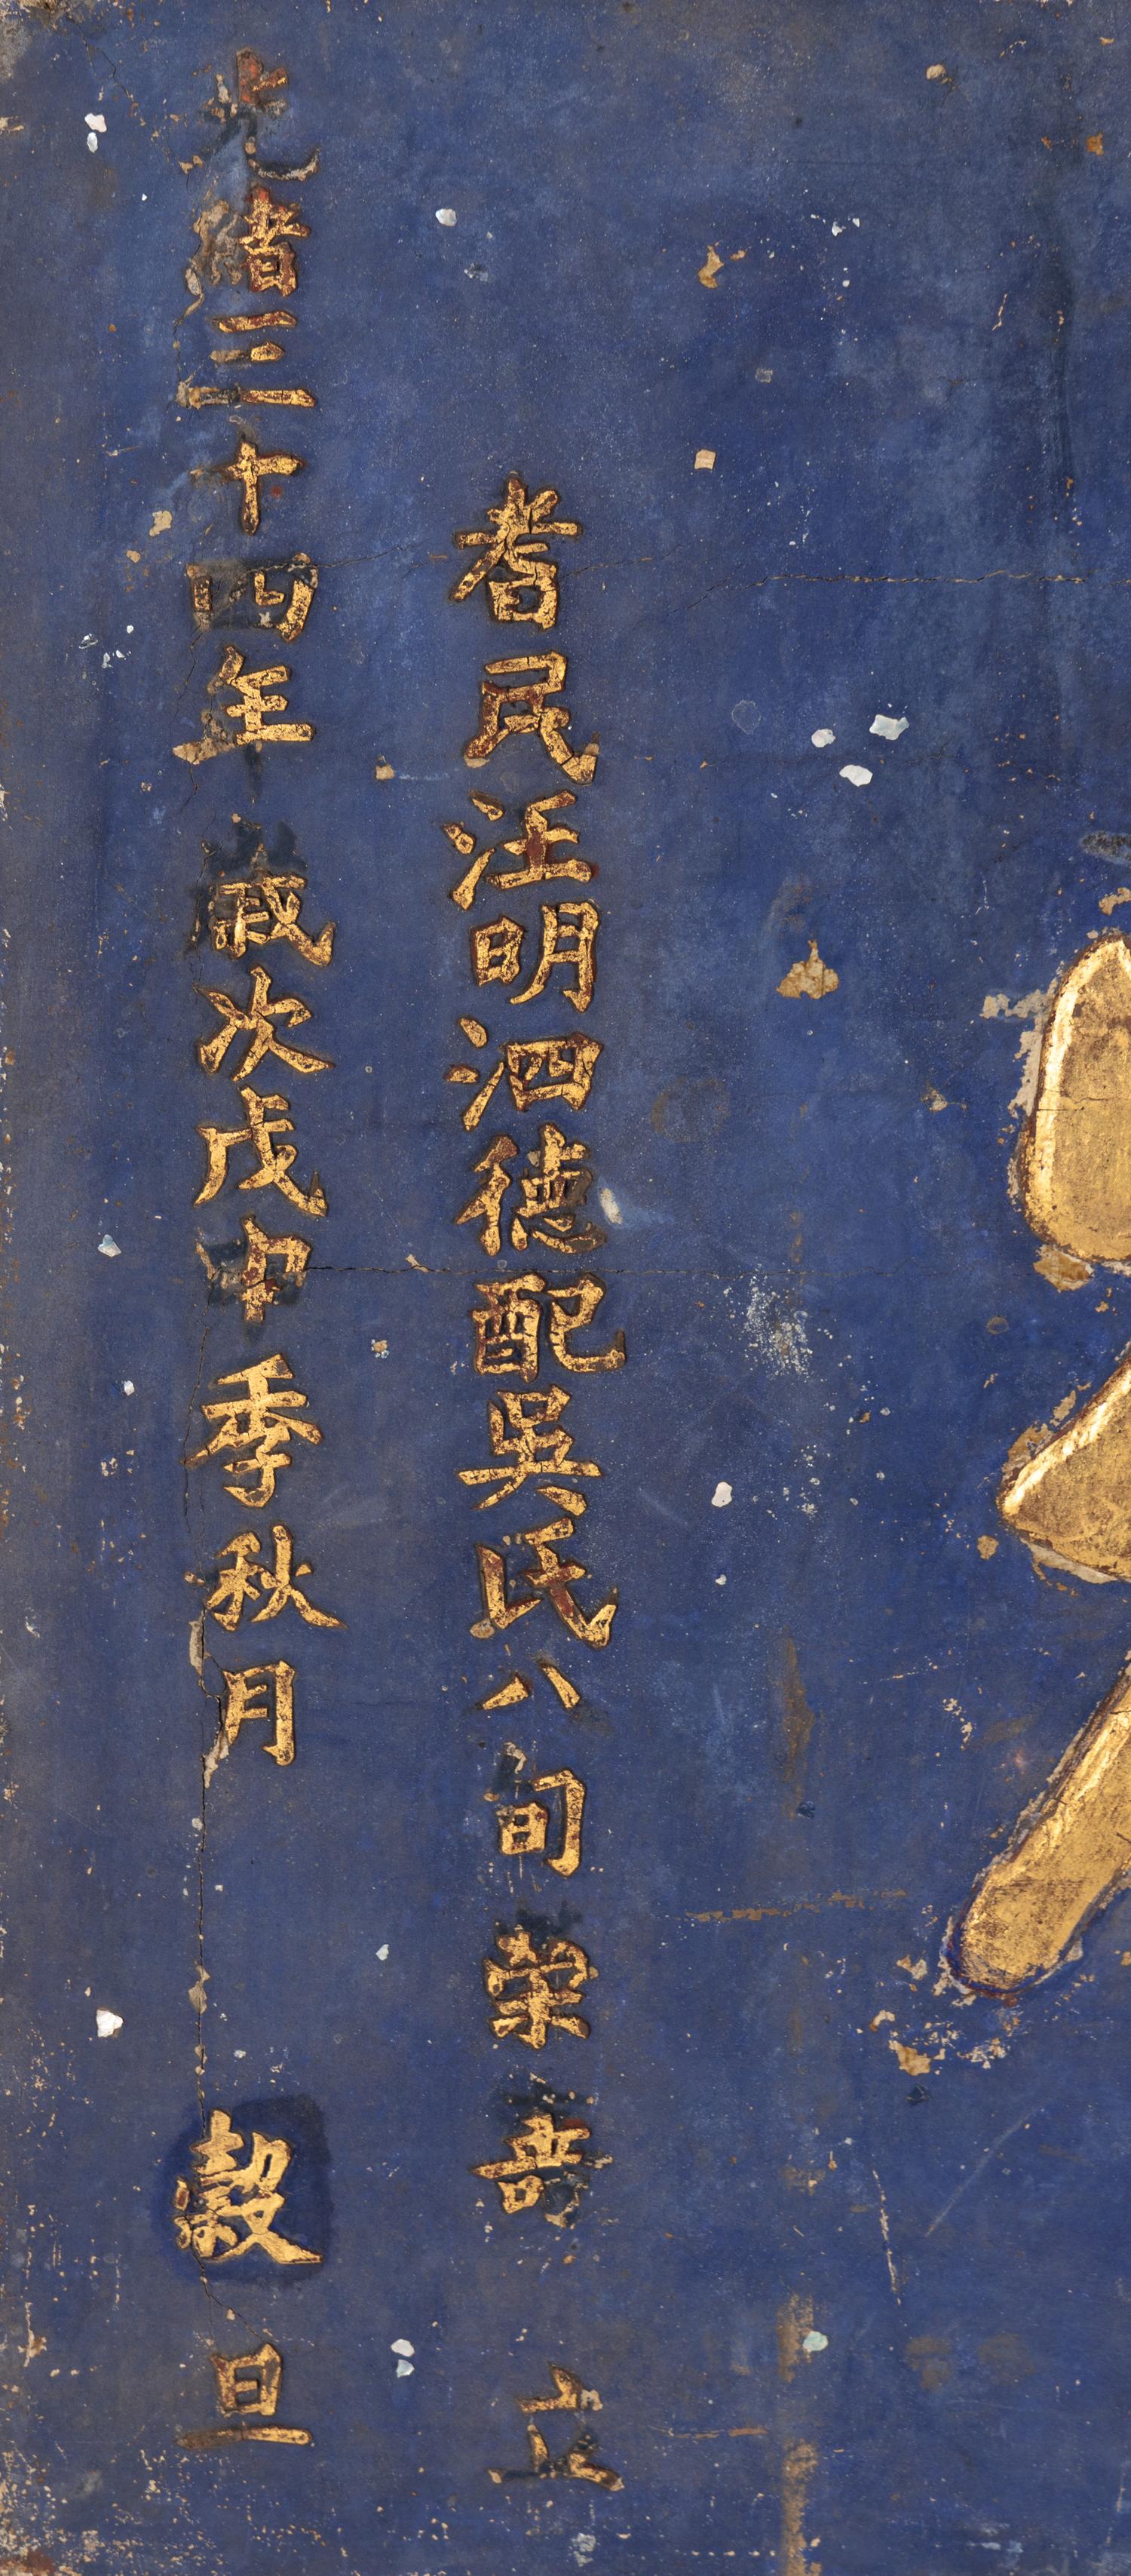 耆民汪明泗德配吳氏八旬榮壽立
光緒三十四年歲次戊申季秋月穀旦